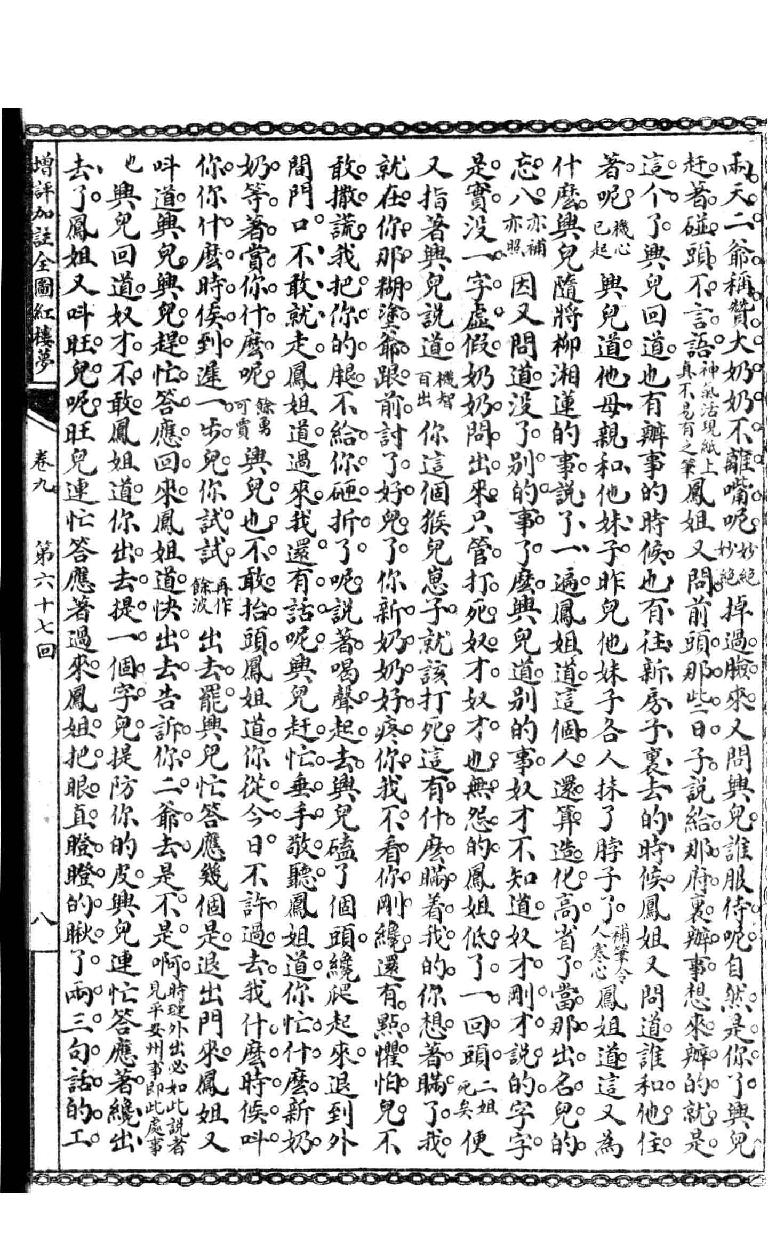 兩天二爺稱贊大奶奶不離嘴呢妙絕妙絕掉過臉來又問興兒誰服侍呢自然是你了興兒
赶著碰頭不言語神氣活現紙上真不易有之筆鳳姐又問前頭那些日子說給那府裏辦事想來辦的就是
這个了興兒回道也有辦事的時候也有往新房子裏去的時候鳳姐又問道誰和他住
著呢機心已起興兒道他母親和他妹子昨兒他妹子各人抹了脖子了補筆令人寒心鳳姐道這又為
什麼興兒隨將柳湘蓮的事說了一遍鳳姐道這個人還算造化高省了當那出名兒的
忘八亦補亦照因又問道沒了別的事了麼興兒道別的事奴才不知道奴才剛才說的字字
是實沒一字虛假奶奶問出來只管打死奴才奴才也無怨的鳳姐低了一回頭二姐死矣便
又指著興兒說道機智百出你這個猴兒崽子就該打死這有什麼瞞着我的你想著瞞了我
就在你那糊塗爺跟前討了好兒了你新奶奶好疼你我不看你剛纔還有點懼怕兒不
敢撒謊我把你的腿不給你砸折了呢說著喝聲起去興兒磕了個頭纔爬起來退到外
間門口不敢就走鳳姐道過來我還有話呢興兒赶忙垂手敬聽鳳姐道你忙什麼新奶
奶等著賞你什麼呢餘勇可賈興兒也不敢抬頭鳳姐道你從今日不許過去我什麼時候呌
你你什麼時候到遲一步兒你試試再作餘波出去罷興兒忙答應幾個是退出門來鳳姐又
呌道興兒興兒趕忙答應回來鳳姐道快出去告訴你二爺去是不是啊時璉外出必如此說者見平安州事即此處事
也興兒回道奴才不敢鳳姐道你出去提一個字兒提防你的皮興兒連忙答應著纔出
去了鳳姐又呌旺兒呢旺兒連忙答應著過來鳳姐把眼直瞪瞪的瞅了兩三句話的工
增評加註全圖紅樓夢 卷九 第六十七回 八